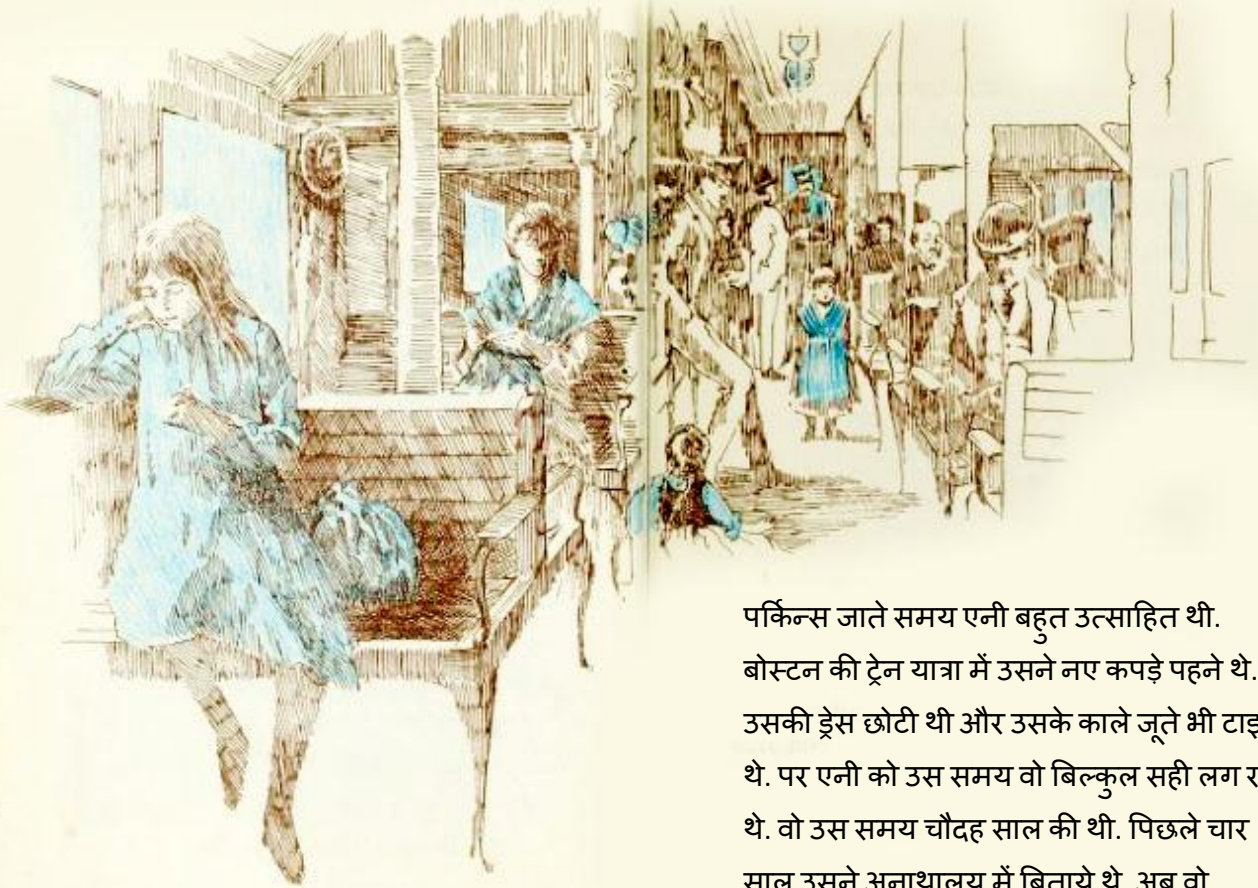 पर्किन्स जाते समय एनी बहुत उत्साहित थी.
बोस्टन की ट्रेन यात्रा में उसने नए कपड़े पहने थे.
उसकी ड्रेस छोटी थी और उसके काले जूते भी
थे. पर एनी को उस समय वो बिल्कुल सही लग
थे. वो उस समय चौदह साल की थी. पिछले चार
साल उसने अनाथालय में बिताये थे. अब वो